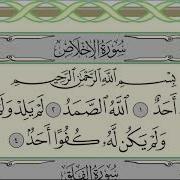 سُورَةُ الإِخْلَاصِ
بِسْمِ ٱللَّهِ ٱلرَّحْمَٰنِ ٱلرَّحِيمِ
أَحَدٌ ١ ٱللَّهُ ٱلصَّمَدُ ٢ لَمْ يَلِدْ وَلَ
وَلَمْ يَكُن لَّهُۥ كُفُوًا أَحَدٌۢ ٤
سُورَةُ الفَلَقِ